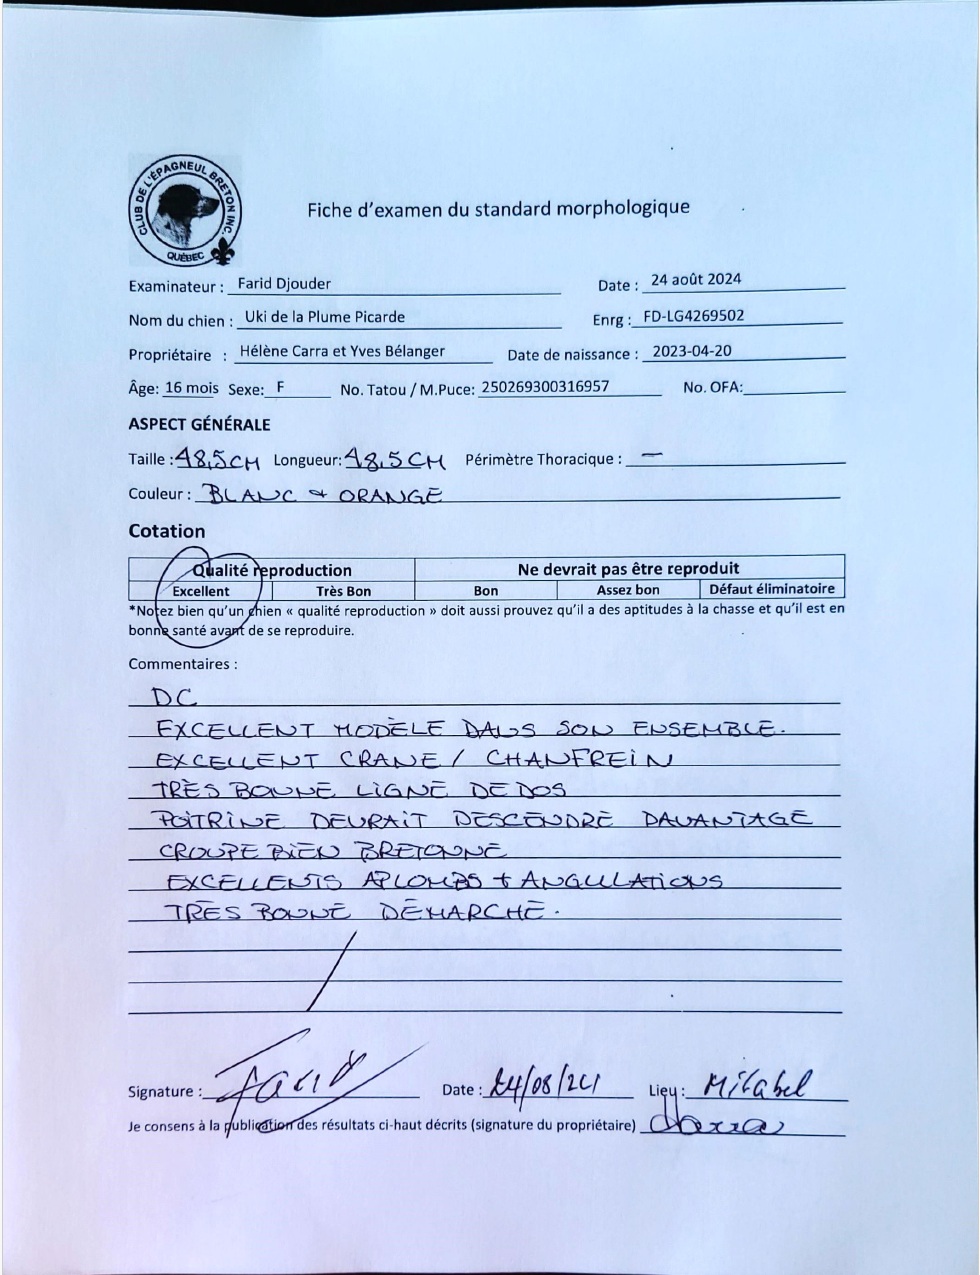 CLUB DE L'ÉPAGNEUL BRETON INC.
QUÉBEC
Fiche d'examen du standard morphologique
Examinateur : Farid Djouder Date : 24 août 2024
Nom du chien : Uki de la Plume Picarde Enrg : FD-LG4269502
Propriétaire : Hélène Carra et Yves Bélanger Date de naissance : 2023-04-20
Âge: 16 mois Sexe: F No. Tatou / M.Puce: 250269300316957 No. OFA:
ASPECT GÉNÉRALE
Taille : 48,5CM Longueur: 48,5CM Périmètre Thoracique : —
Couleur : BLANC & ORANGE
Cotation
Qualité reproduction Ne devrait pas être reproduit
Excellent Très Bon Bon Assez bon Défaut éliminatoire
*Notez bien qu'un chien « qualité reproduction » doit aussi prouvez qu'il a des aptitudes à la chasse et qu'il est en
bonne santé avant de se reproduire.
Commentaires :
DC
EXCELLENT MODÈLE DANS SON ENSEMBLE.
EXCELLENT CRANE / CHANFREIN
TRÈS BONNE LIGNE DE DOS
POITRINE DEVRAIT DESCENDRE DAVANTAGE
CROUPE BIEN BRETONNE
EXCELLENTS APLOMBS + ANGULATIONS
TRÈS BONNE DÉMARCHE.
Signature : Farid Date : 24/08/24 Lieu : Mirabel
Je consens à la publication des résultats ci-haut décrits (signature du propriétaire)